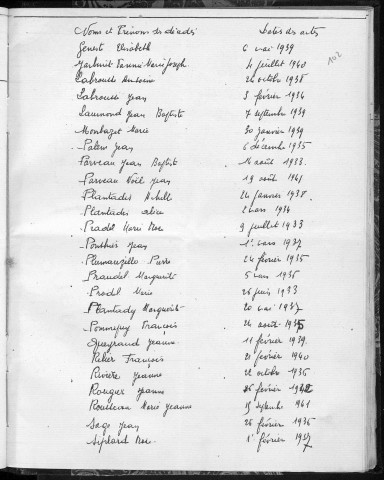 Noms et Prénoms des décédés Dates des actes
102
Genest Elisabeth 6 mai 1939
Marie Joseph 4 juillet 1940
Labrousse Antoine 24 octobre 1938
Labrousse Jean 3 février 1934
Laumond Jean Baptiste 7 septembre 1939
Montagut Marie 30 janvier 1939
Palem Jean 6 décembre 1935
Parveau Jean Baptiste 14 août 1933
Parveau Noël Jean 19 août 1941
Plantades Achille 24 janvier 1938
Plantades 2 mars 1934
Pradel Marie Rose 9 juillet 1933
Ponthier Jean 1er mars 1937
Pierre 24 février 1935
Marguerite 5 mars 1936
Pradel Marie 26 juin 1933
Plantady Marguerite 20 mai 1937
François 24 août 1935
Queyraud Jeanne 11 février 1939
Relier François 21 février 1940
Rivière Jeanne 22 octobre 1936
Rouger Jeanne 25 février
Marie Jeanne 15 septembre 1941
Sage Jean 26 février 1936
Rose 1er février 1937